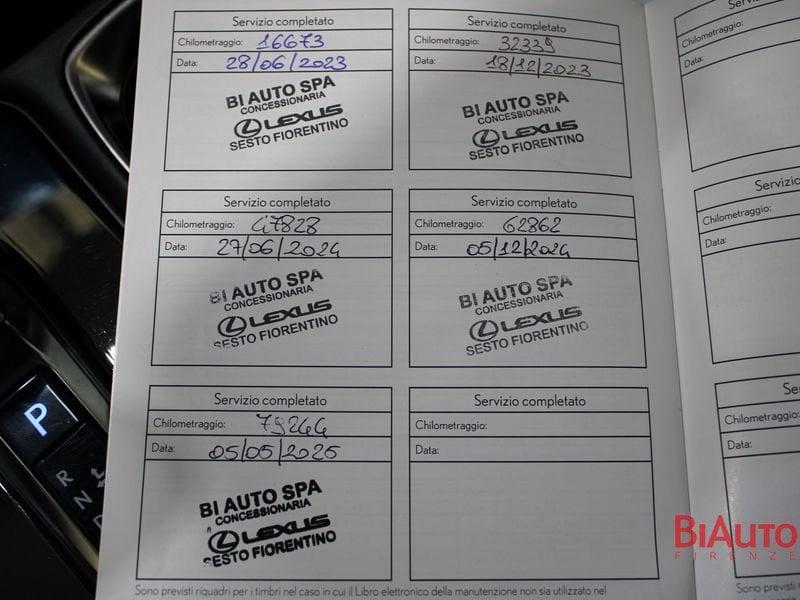 Servizio completato
Chilometraggio: 16673
Data: 28/06/2023
BI AUTO SPA
CONCESSIONARIA
LEXUS
SESTO FIORENTINO
Servizio completato
Chilometraggio: 32339
Data: 18/12/2023
BI AUTO SPA
CONCESSIONARIA
LEXUS
SESTO FIORENTINO
Servizio completato
Chilometraggio: 47828
Data: 27/06/2024
BI AUTO SPA
CONCESSIONARIA
LEXUS
SESTO FIORENTINO
Servizio completato
Chilometraggio: 62862
Data: 05/12/2024
BI AUTO SPA
CONCESSIONARIA
LEXUS
SESTO FIORENTINO
Servizio completato
Chilometraggio: 79244
Data: 05/05/2025
BI AUTO SPA
CONCESSIONARIA
LEXUS
SESTO FIORENTINO
Servizio completato
Chilometraggio:
Data:
Sono previsti riquadri per i timbri nel caso in cui il Libro elettronico della manutenzione non sia utilizzato nel
Chilometraggio:
Data:
Servizio
Chilometraggio:
Data:
Se
Chilometraggio:
Data:
P
R
N
D
BIAUTO
FIRENZE